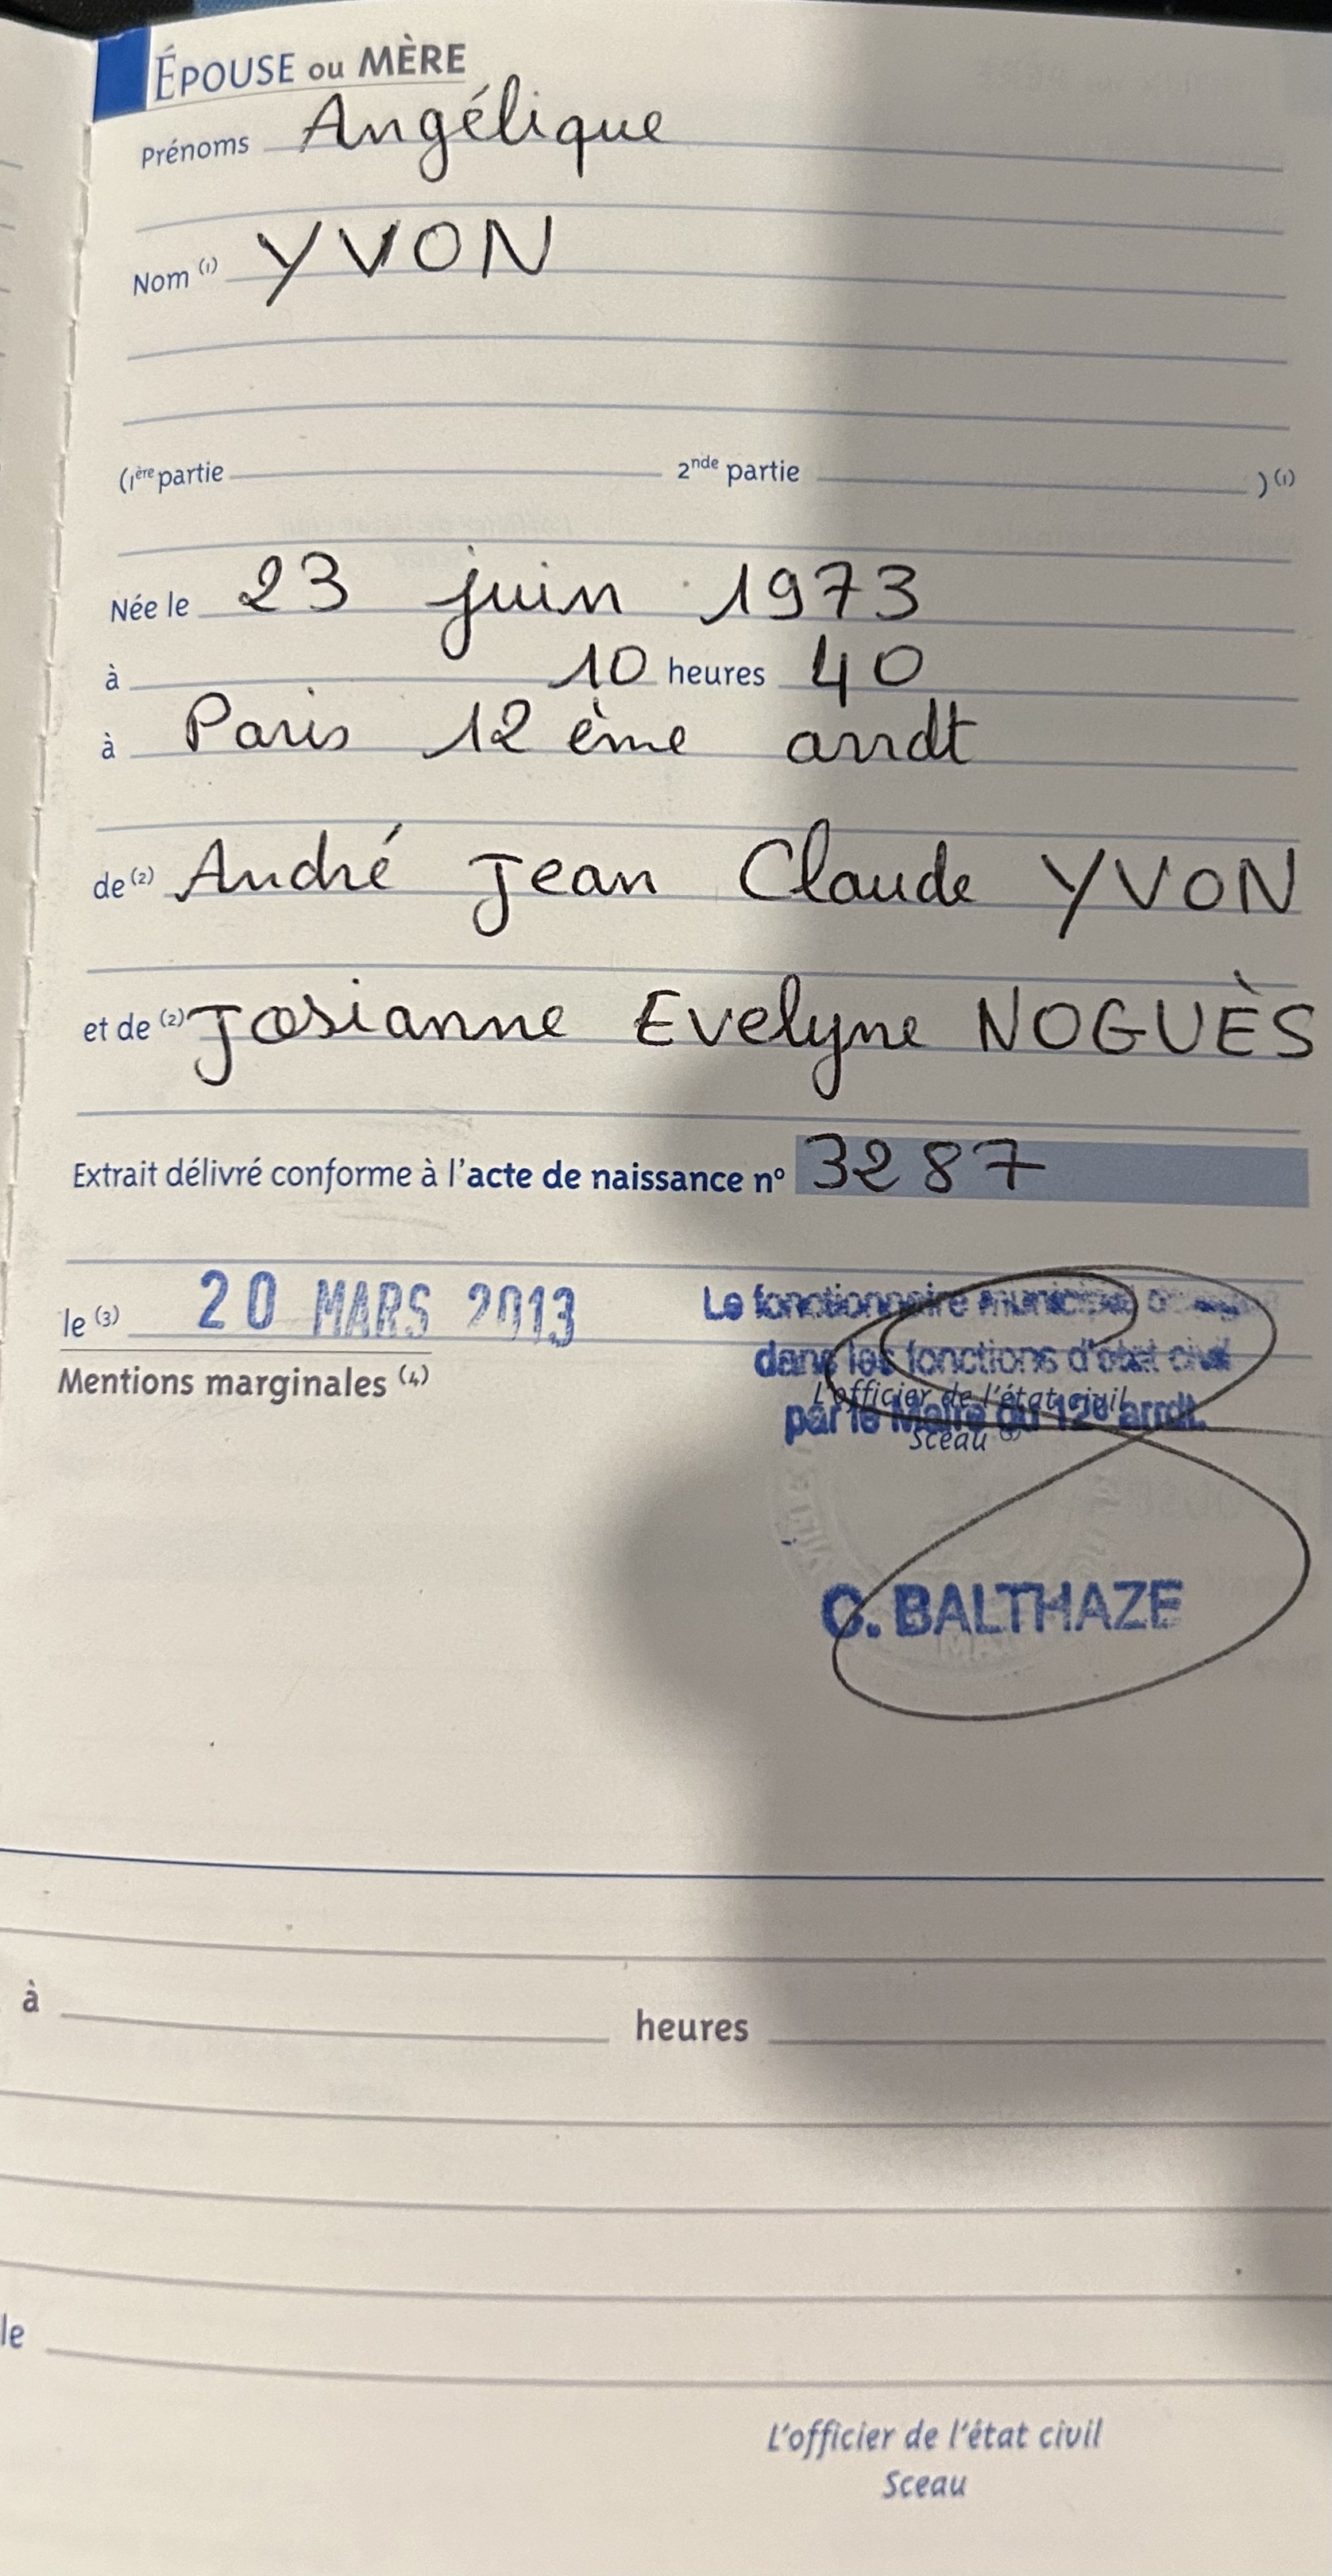 ÉPOUSE OU MÈRE
Prénoms Angélique
Nom (1) YVON
(1ère partie 2nde partie ) (1)
Née le 23 juin 1973
à 10 heures 40
à Paris 12 ème arrdt
de (2) André Jean Claude YVON
et de (2) Josianne Evelyne NOGUÈS
Extrait délivré conforme à l'acte de naissance nº 3287
le (3) 20 MARS 2013
Le fonctionnaire municipal
dans les fonctions d'état civil
L'officier de l'état civil
par le Maire du 12e arrdt.
Sceau
Mentions marginales (4)
C. BALTHAZE
à heures
le
L'officier de l'état civil
Sceau